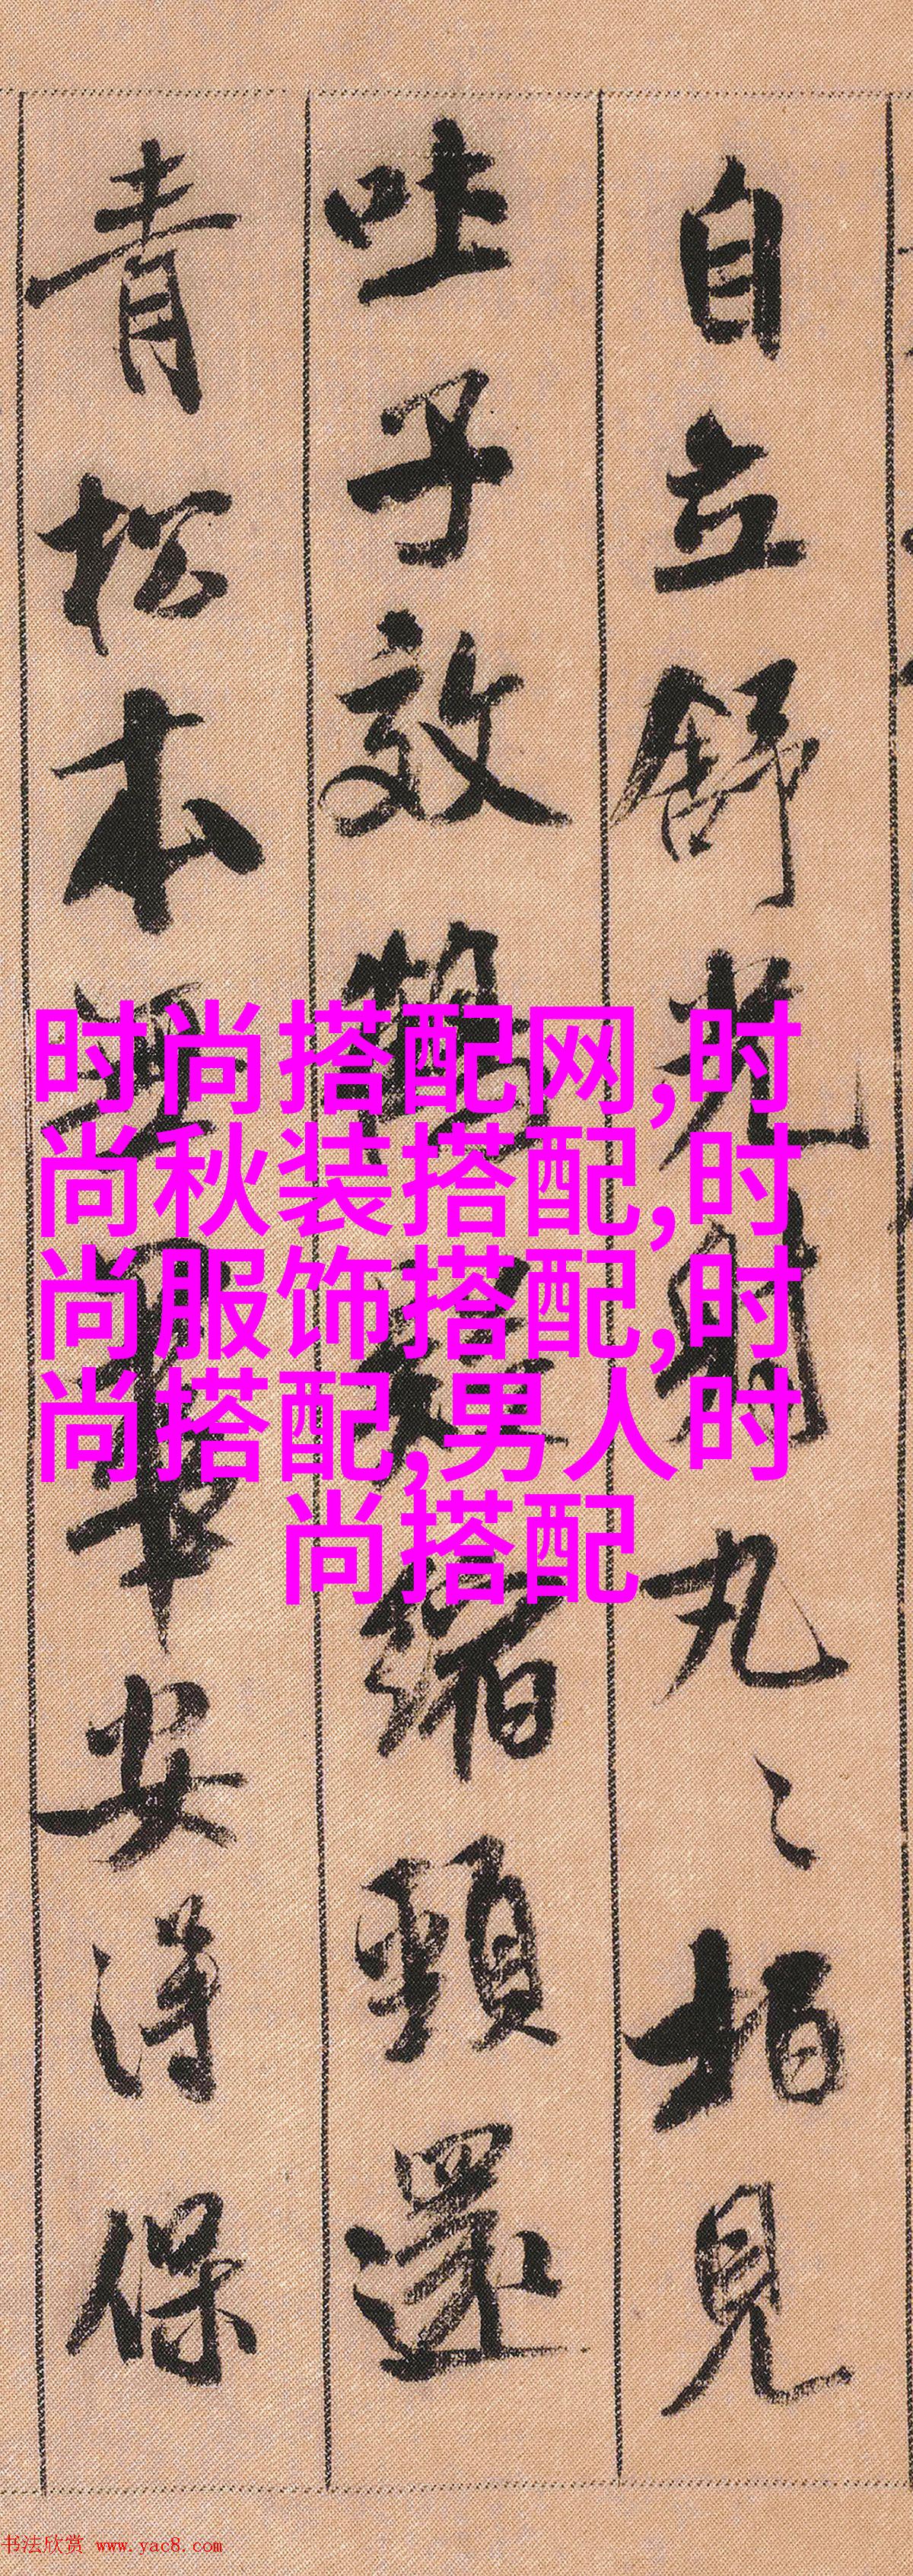 自立舒光射丸〻柏見
吐子效鶴疑縮頸還
青松本無華安得保
时尚搭配网,时
尚秋装搭配,时
尚服饰搭配,时
尚搭配,男人时
尚搭配
书法欣赏 www.yac8.com